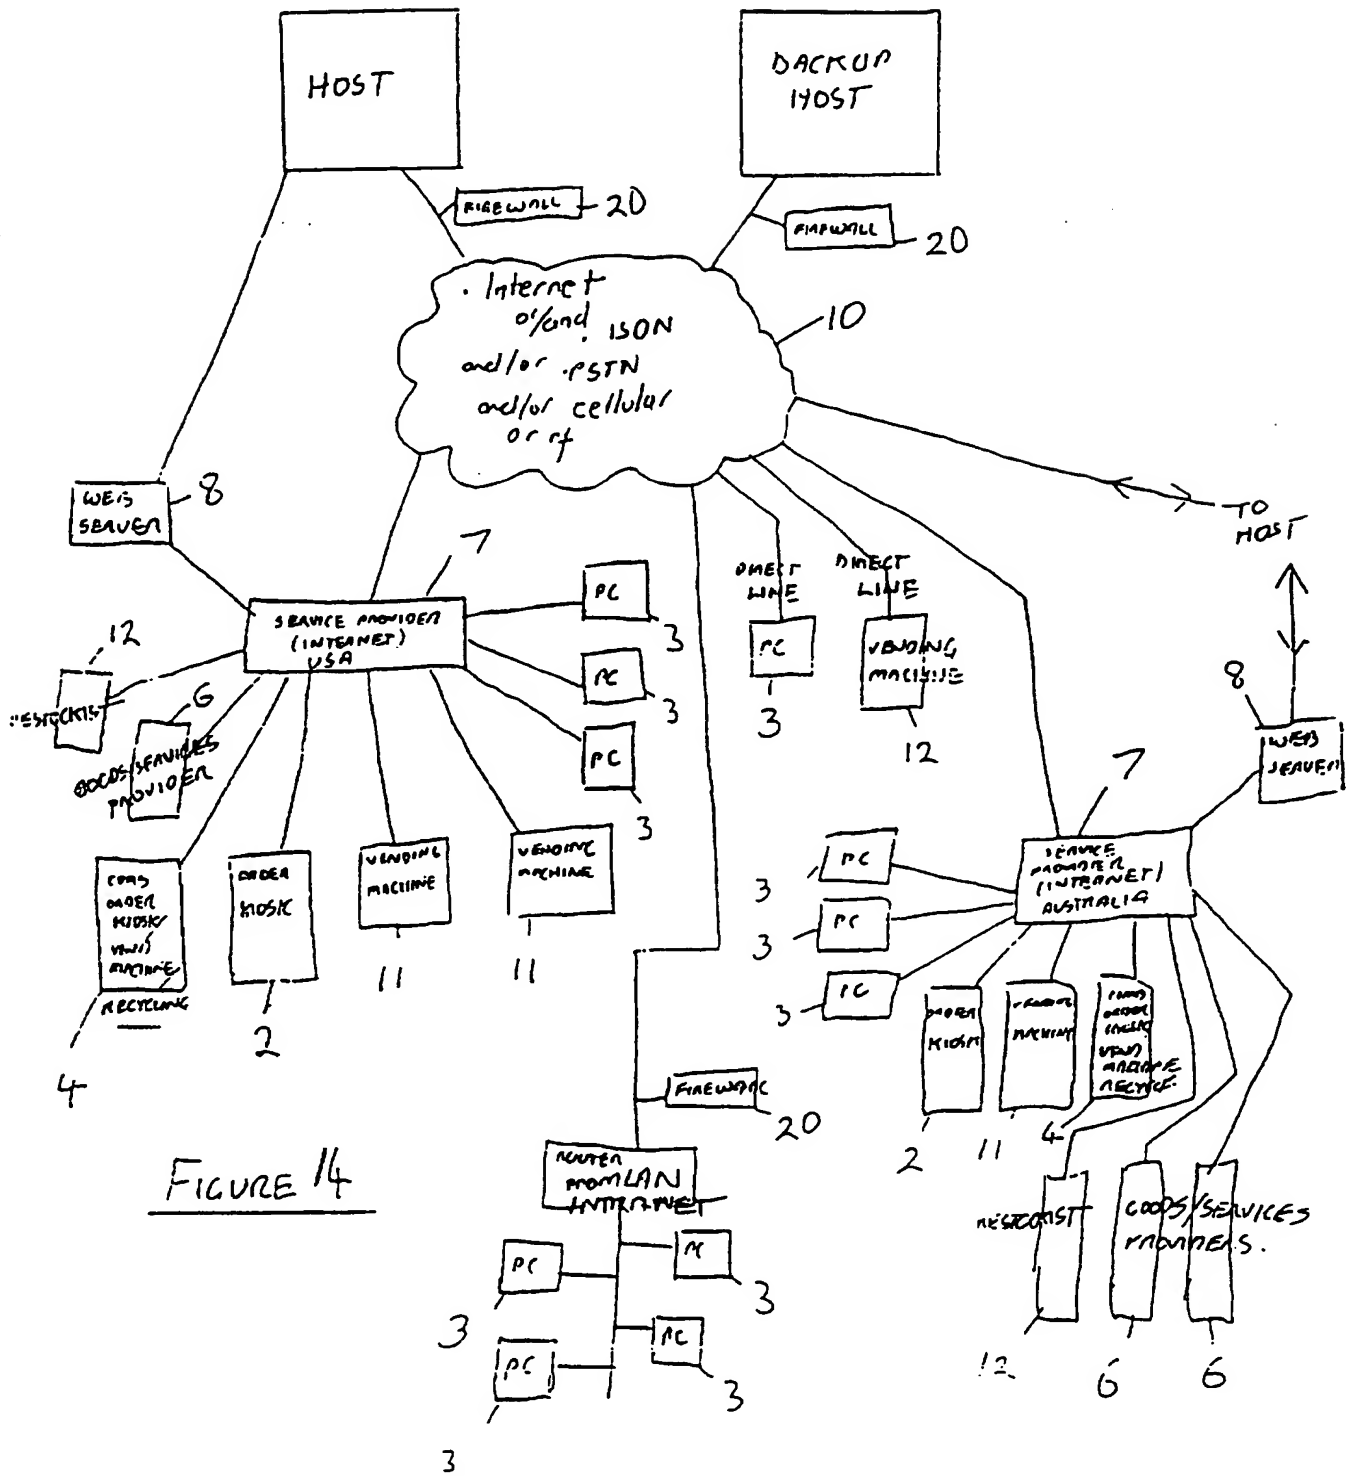 HOST
BACKUP
HOST
FIREWALL
20
FIREWALL
20
. Internet
or/and
. ISDN
and/or . PSTN
and/or cellular
or rf
10
WEB
SERVER
8
TO
HOST
7
SERVICE PROVIDER
(INTERNET)
USA
PC
3
PC
3
PC
3
DIRECT
LINE
PC
3
DIRECT
LINE
VENDING
MACHINE
12
8
WEB
SERVER
12
RESTOCKIST
6
GOODS/SERVICES
PROVIDER
COMB
ORDER
KIOSK/
VEND
MACHINE
RECYCLING
4
ORDER
KIOSK
2
VENDING
MACHINE
11
VENDING
MACHINE
11
7
SERVICE
PROVIDER
(INTERNET)
AUSTRALIA
PC
3
PC
3
PC
3
ORDER
KIOSK
2
VENDING
MACHINE
11
COMB
ORDER
KIOSK
VEND
MACHINE
RECYCLE
4
FIREWALL
20
ROUTER
FROM LAN
INTRANET
PC
3
PC
3
PC
3
PC
3
RESTOCKIST
12
GOODS/SERVICES
PROVIDERS.
6
6
FIGURE 14